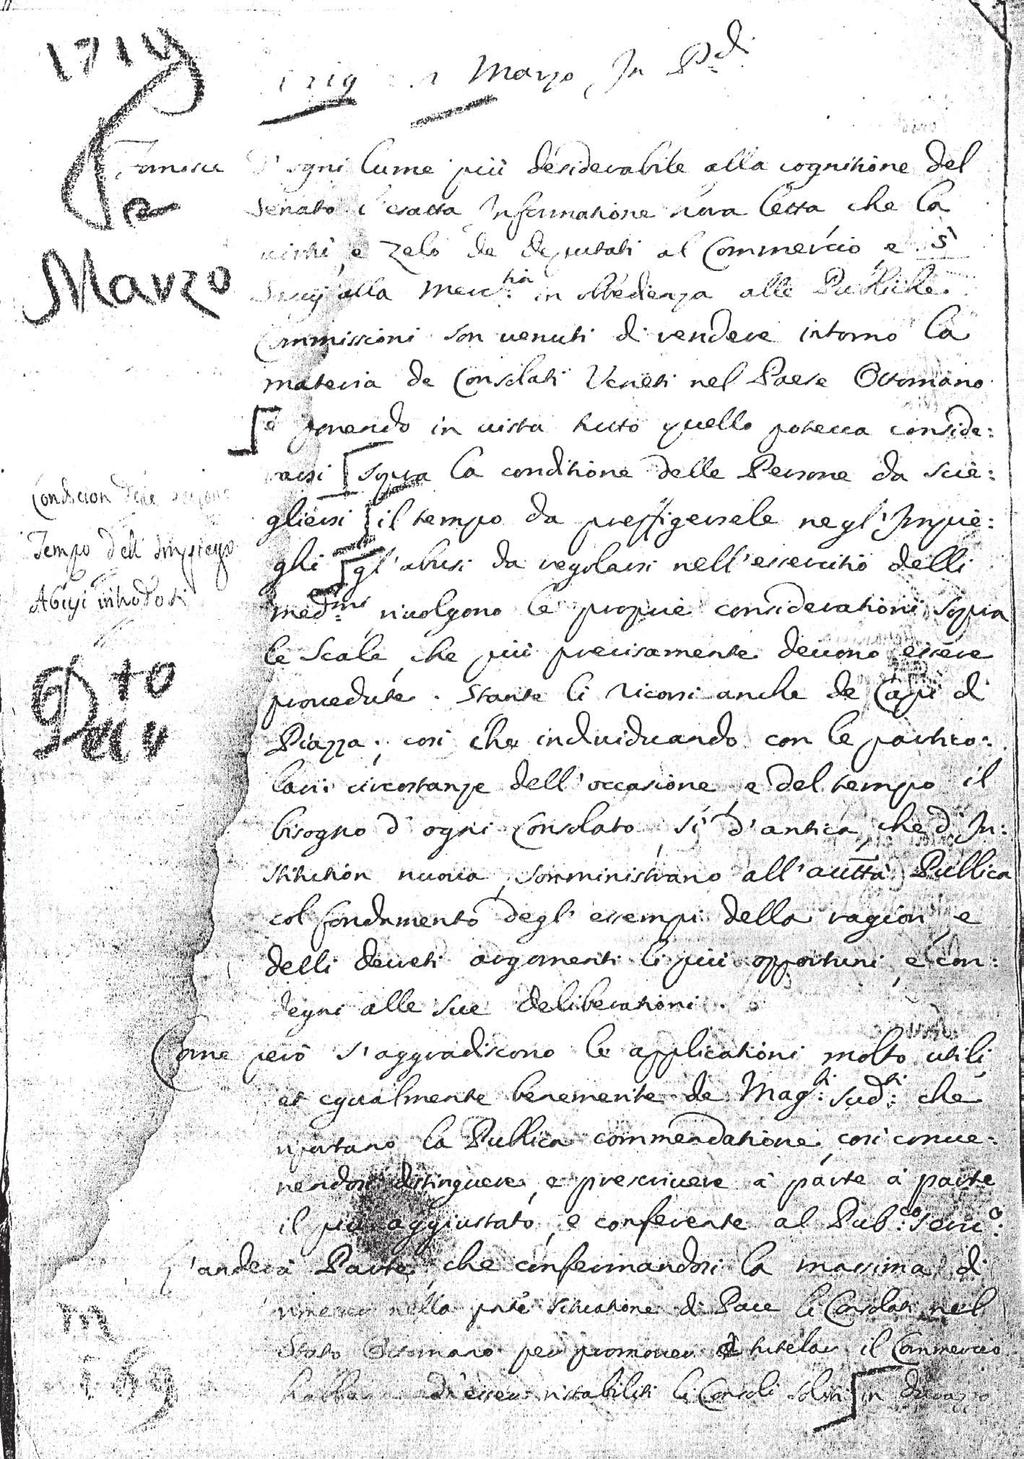 1719
1719 1 Marzo In P.di
Marzo
d'ogni lume più desiderabile alla cognitione del
Senato l'esatta Informatione hora letta che la
virtù, e zelo de deputati al Commercio, e
Savij alla Merc.tia in obbedienza alle Publiche
Commissioni son venuti di rendere intorno la
materia de Consolati Veneti nel Paese Ottomano
e ponendo in vista tutto quello poteva conside:
rarsi sopra la conditione delle Persone da scie:
gliersi il tempo da preffigersele negl'Impie:
ghi gl'abusi da regolarsi nell'esercitio delli
Condicion delle
Tempo dell'Impiego
Abusi introdoti
med.mi rivolgono le proprie considerationi sopra
le Scale, che più precisamente devono essere
provedute. Stante li ricorsi anche de Capi di
Piazza; così che individuando con le partico:
lari circostanze dell'occasione, e del tempo il
bisogno d'ogni Consolato, sì d'antica, che d'In:
stitution nuova, somministrano all'autttà Publica
col fondamento degl'essempi della ragion, e
delli decreti argomenti li più opportuni, e con:
degni alle sue deliberationi.
Come però s'aggradiscono le applicationi molto utili
et egualmente benemerite de Mag.ti sud.ti che
riportano la Publica commendatione, così conve:
nendosi distinguere, e prescrivere à parte à parte
il più aggiustato, e conferente al Pub.co serv.o
L'anderà Parte, che confermandosi la massima di
rimetter nella pnte situatione di Pace li Consolati nel
Stato Ottomano per promover et tutelar il Commercio
habbano d'esser ristabiliti li Consoli soliti in Durazzo
169